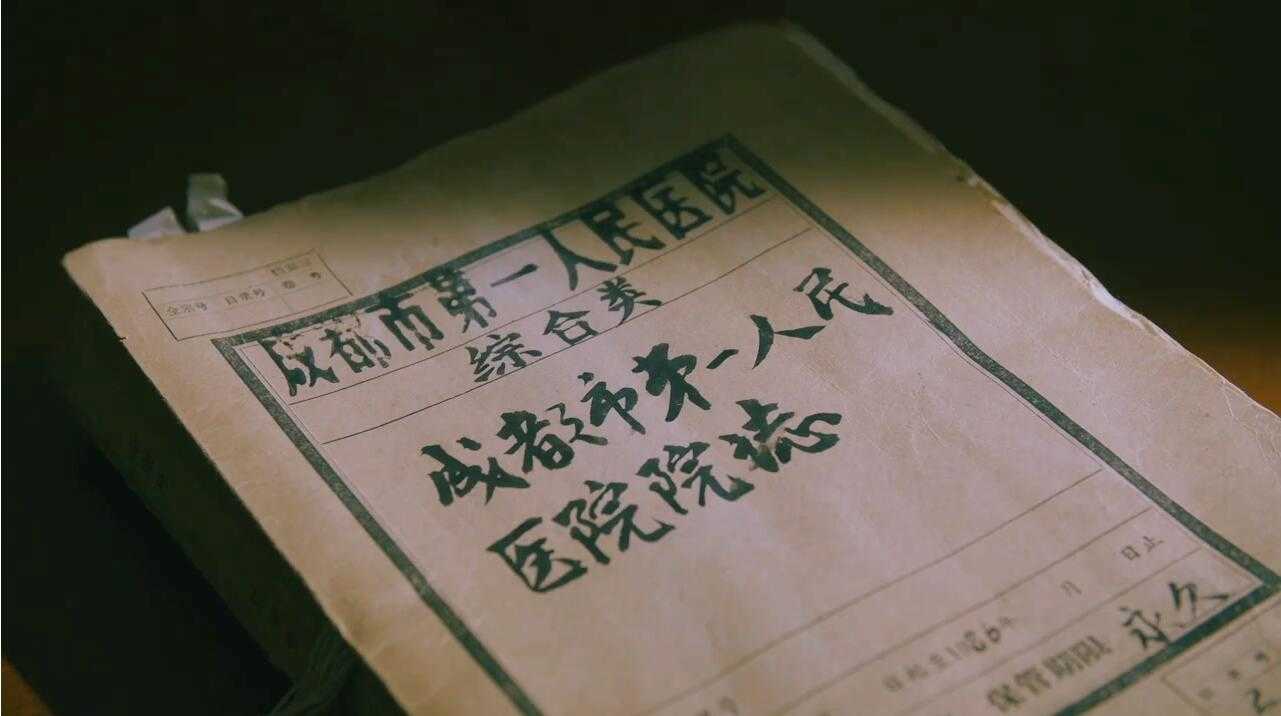 全宗号 目录号 卷号
成都市第一人民医院
综合类
成都市第一人民
医院院誌
日起至1986年 月 日止
保管期限 永久